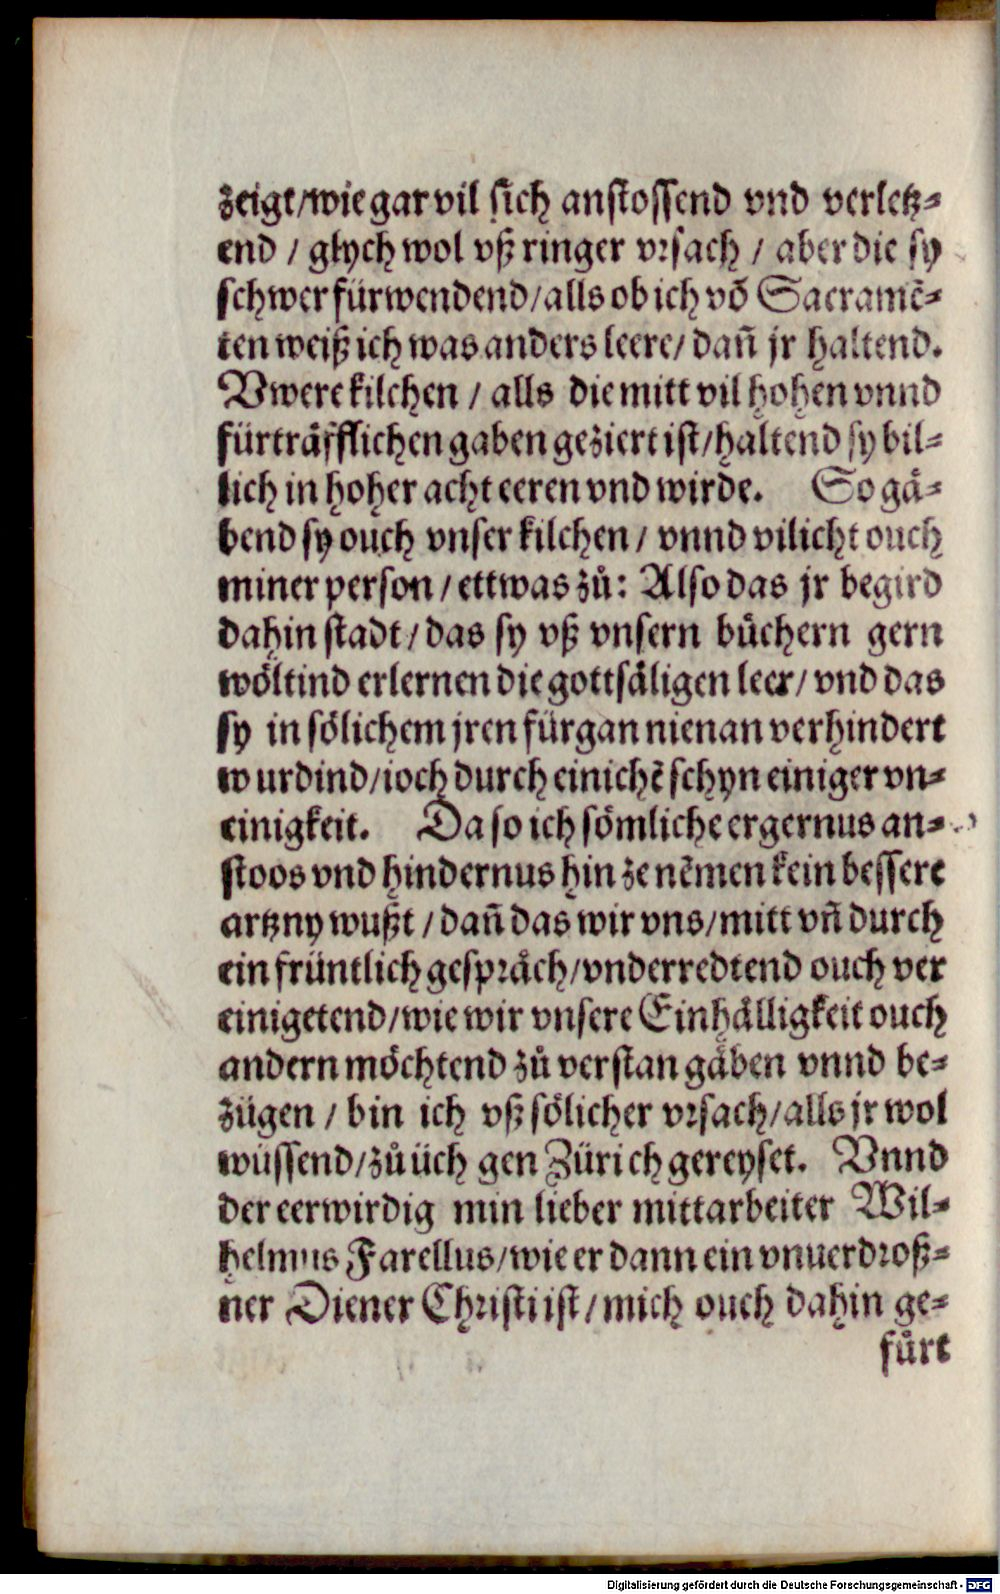 zeigt/wie gar vil sich anstossend vnd verletz⸗
end / glych wol vß ringer vrsach / aber die sy
schwer fürwendend/alls ob ich võ Sacramẽ⸗
ten weiß ich was anders leere/ dañ jr haltend.
Vwere kilchen / alls die mitt vil hohen vnnd
fürträfflichen gaben geziert ist/haltend sy bil⸗
lich in hoher acht eeren vnd wirde. So gä⸗
bend sy ouch vnser kilchen / vnnd vilicht ouch
miner person / ettwas zů: Also das jr begird
dahin stadt / das sy vß vnsern bůchern gern
wöltind erlernen die gottsäligen leer/ vnd das
sy in sölichem jren fürgan nienan verhindert
wurdind/ioch durch einichẽ schyn einiger vn⸗
einigkeit. Da so ich sömliche ergernus an⸗
stoos vnd hindernus hin ze nẽmen kein bessere
artzny wußt / dañ das wir vns/mitt vñ durch
ein früntlich gespräch/vnderredtend ouch ver
einigetend/wie wir vnsere Einhälligkeit ouch
andern möchtend zů verstan gäben vnnd be⸗
zügen / bin ich vß sölicher vrsach/alls jr wol
wüssend/zů üch gen Zürich gereyset. Vnnd
der eerwirdig min lieber mittarbeiter Wil⸗
helmus Farellus/wie er dann ein vnuerdroß⸗
ner Diener Christi ist / mich ouch dahin ge⸗
fůrt
Digitalisierung gefördert durch die Deutsche Forschungsgemeinschaft - DFG